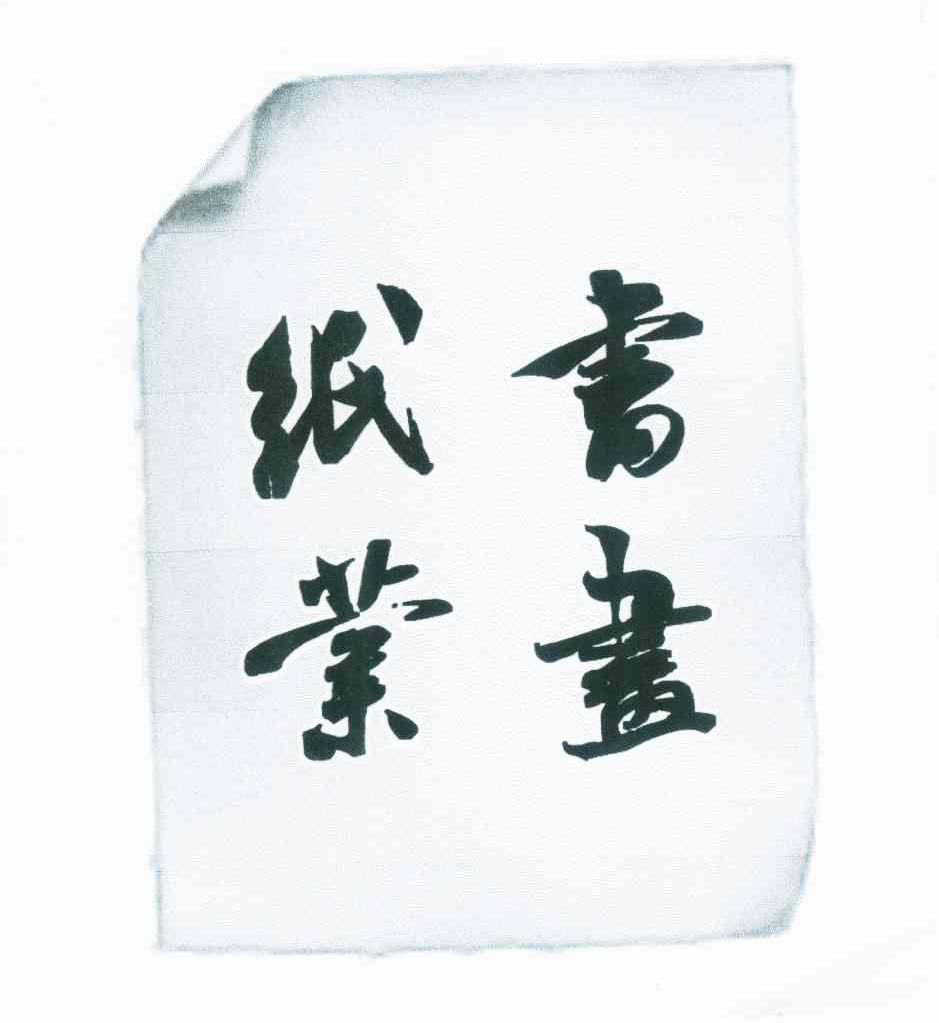 書畫
紙業